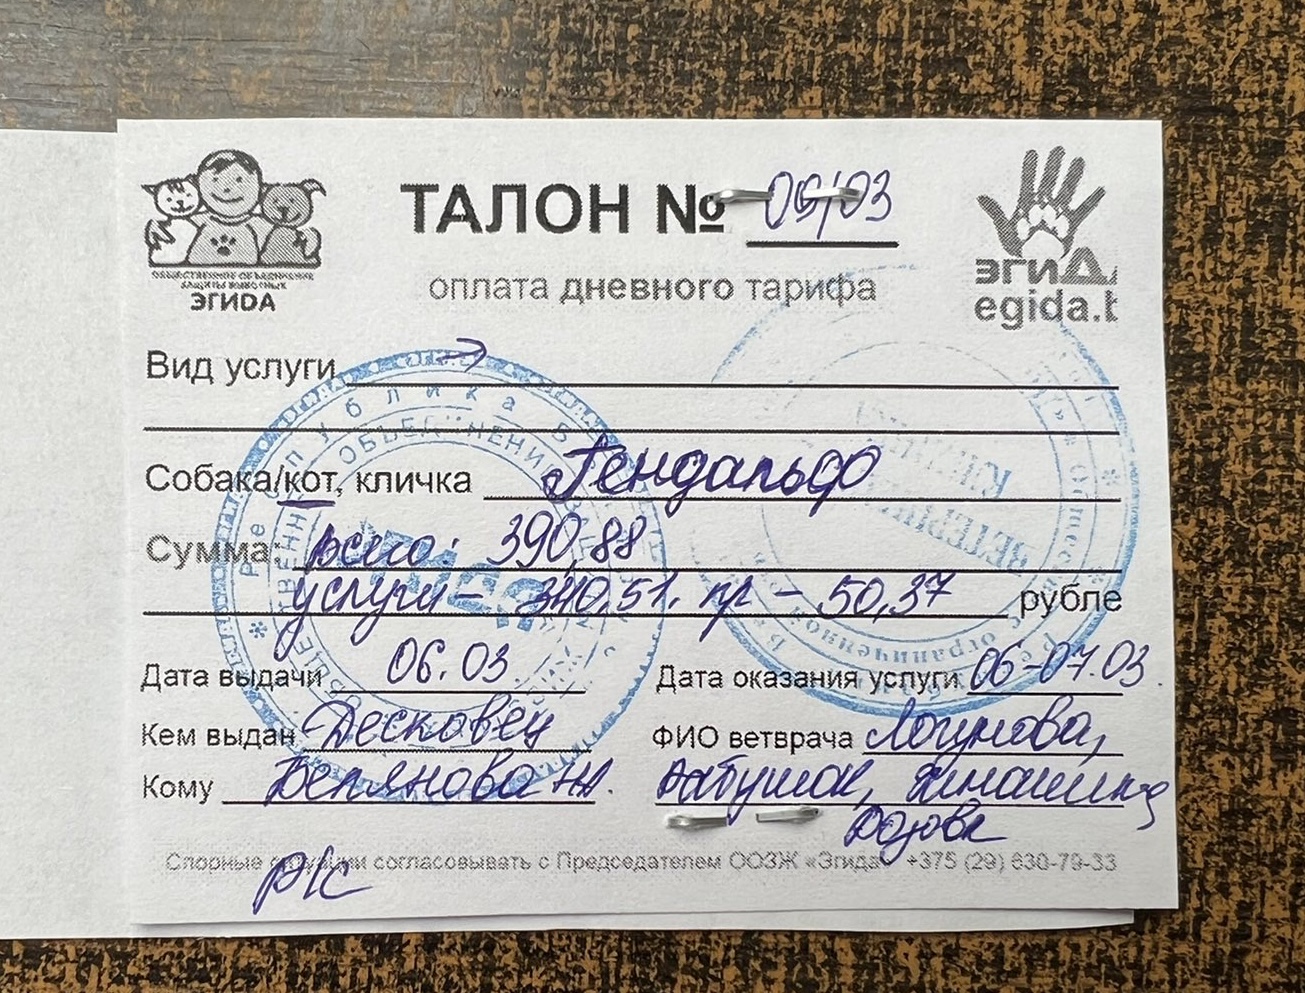 ТАЛОН № 06/03
оплата дневного тарифа
ОБЩЕСТВЕННОЕ ОБЪЕДИНЕНИЕ
ЗАЩИТЫ ЖИВОТНЫХ
ЭГИDA
ЭГИД
egida.b
Вид услуги
Собака/кот, кличка Гендальф
Сумма: всего: 390,88
услуги - 340,51. пр - 50,37 рубле
Дата выдачи 06.03 Дата оказания услуги 06-07.03.
Кем выдан Десковец ФИО ветврача Логунова,
Кому
Спорные ситуации согласовывать с Председателем ООЗЖ «Эгида» +375 (29) 630-79-33
р/с
Республика